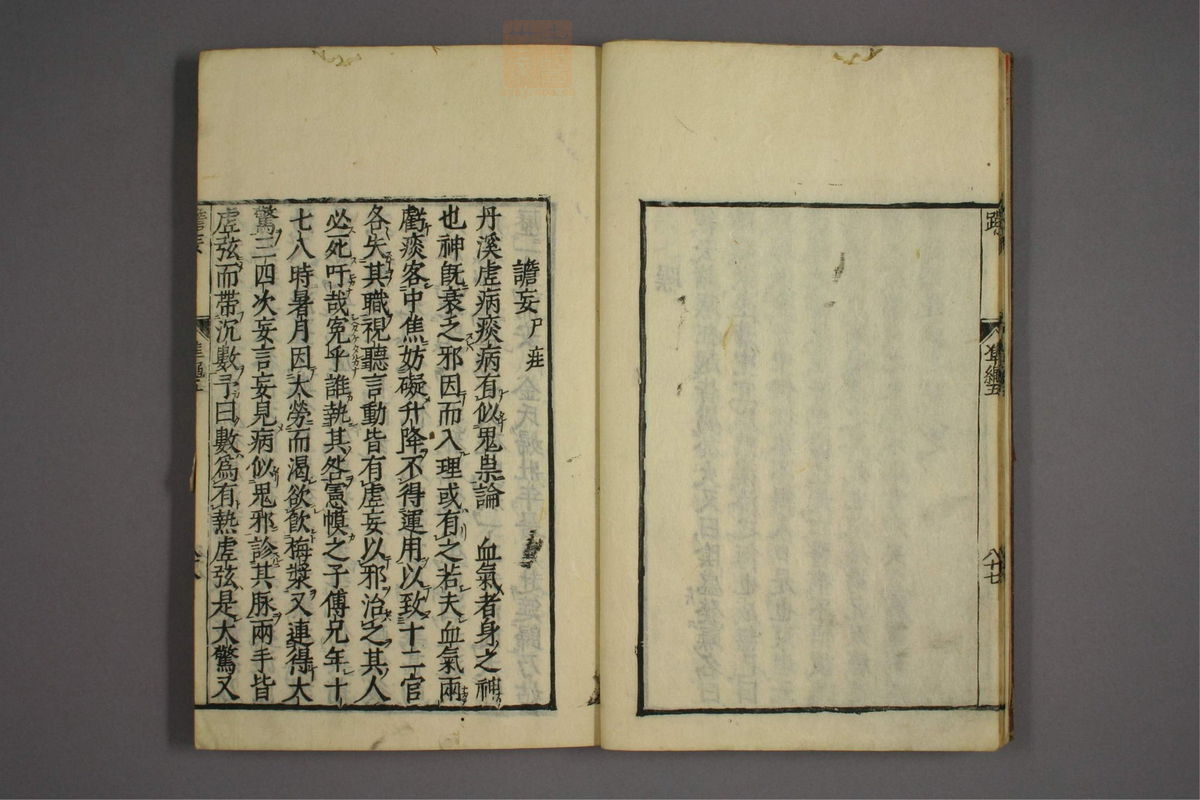 躁
準繩五
八十七
譫妄尸疰
丹溪虚病痰病有似鬼祟論 血氣者身之神
也神旣衰乏邪因而入理或有之若夫血氣兩
虧痰客中焦妨礙升降不得運用以致十二官
各失其職視聽言動皆有虚妄以邪治之其人
必死吁哉寃乎誰執其咎憲幙之子傅兄年十
七八時暑月因太勞而渴欲飮梅漿又連得大
驚三四次妄言妄見病似鬼邪診其脉兩手皆
虚弦而帶沉數予曰數爲有熱虚弦是大驚又